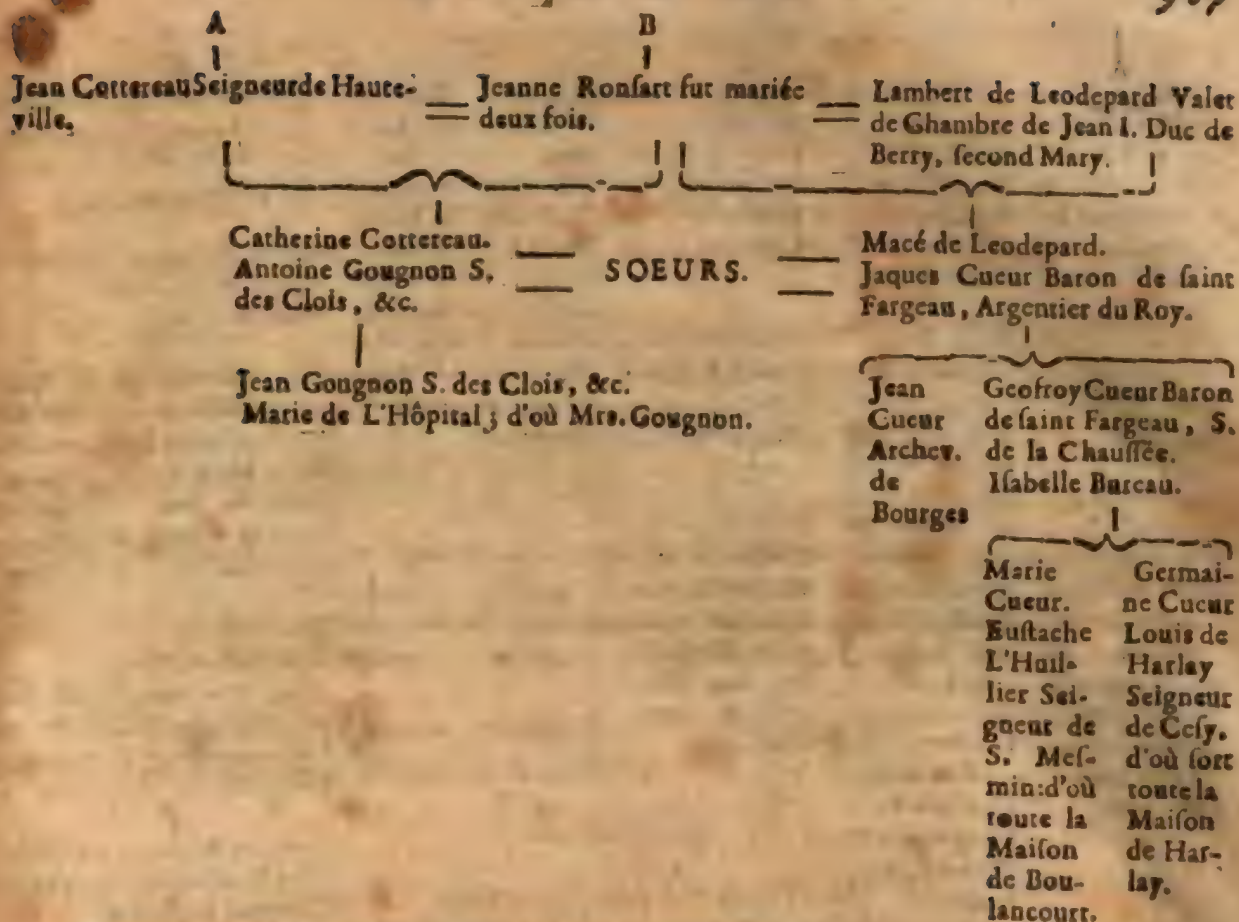 A
B
Jean Cottereau Seigneur de Haute-
ville,
Jeanne Ronſart fut mariée
deux fois.
Lambert de Leodepard Valet
de Chambre de Jean I. Duc de
Berry, ſecond Mary.
Catherine Cottereau.
Antoine Gougnon S.
des Clois, &c.
SOEURS.
Macé de Leodepard.
Jaques Cueur Baron de ſaint
Fargeau, Argentier du Roy.
Jean Gougnon S. des Clois, &c.
Marie de L'Hôpital; d'où Mrs. Gougnon.
Jean
Cueur
Archev.
de
Bourges
Geofroy Cueur Baron
de ſaint Fargeau, S.
de la Chauſſée.
Iſabelle Bureau.
Marie
Cueur.
Euſtache
L'Huil-
lier Sei-
gneur de
S. Meſ-
min: d'où
toute la
Maiſon
de Bou-
lancourt.
Germai-
ne Cueur
Louis de
Harlay
Seigneur
de Ceſy.
d'où ſort
toute la
Maiſon
de Har-
lay.